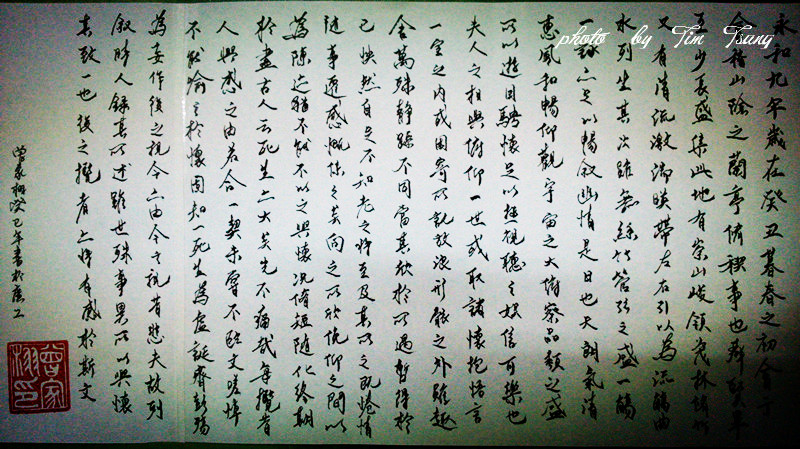 永和九年歲在癸丑暮春之初會于
會稽山陰之蘭亭脩稧事也群賢畢
至少長咸集此地有崇山峻領茂林脩竹
又有清流激湍暎帶左右引以為流觴曲
水列坐其次雖無絲竹管弦之盛一觴
一詠亦足以暢叙幽情是日也天朗氣清
惠風和暢仰觀宇宙之大俯察品類之盛
所以遊目騁懷足以極視聽之娛信可樂也
夫人之相與俯仰一世或取諸懷抱悟言
一室之內或因寄所託放浪形骸之外雖趣
舍萬殊靜躁不同當其欣於所遇暫得於
己怏然自足不知老之將至及其所之既惓情
隨事遷感慨係之矣向之所欣俛仰之間以
為陳迹猶不能不以之興懷況脩短隨化終期
於盡古人云死生亦大矣豈不痛哉每攬昔
人興感之由若合一契未嘗不臨文嗟悼
不能喻之於懷固知一死生為虛誕齊彭殤
為妄作後之視今亦由今之視昔悲夫故列
叙時人錄其所述雖世殊事異所以興懷
其致一也後之攬者亦將有感於斯文
曾家栩癸巳年書於
曾家栩印
photo by Tim Tsang